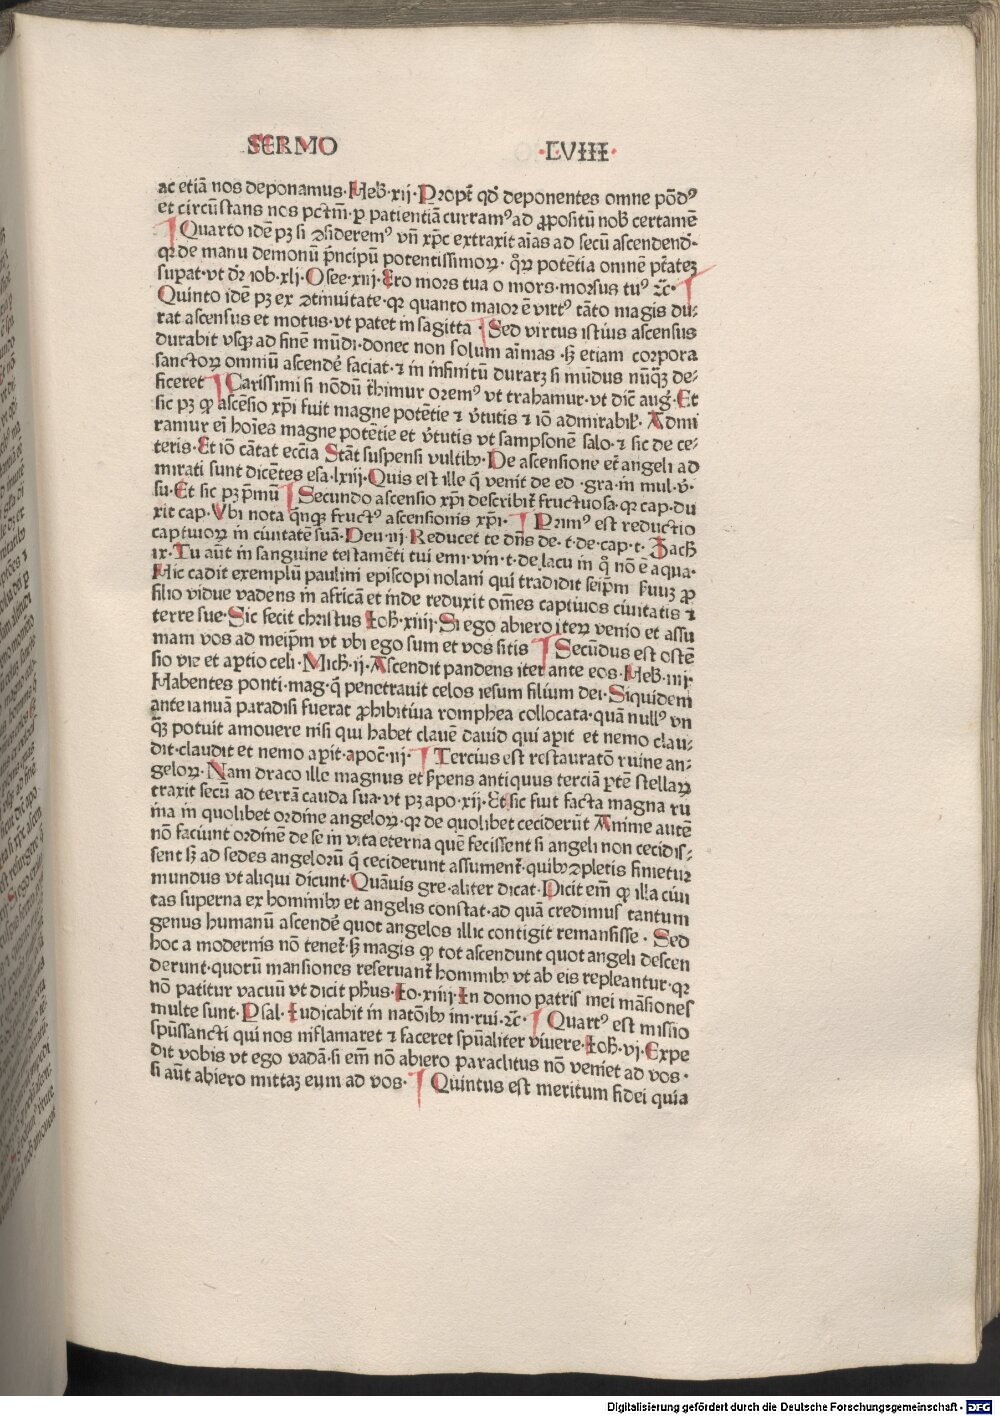 SERMO ·LVIII·
ac etiā nos deponamus·Heb̄·xij·Propt̄ qd̕ deponentes omne pōdꝰ
et circūstans nos pctm̄·ꝑ patientiā curramꝰ ad ꝓpositū nob̄ certamē
¶ Quarto idē pꝫ si ꝯsideremꝰ vn̄ xp̄c extraxit aīas ad secū ascendend̕·
qꝛ de manu demonū p̄ncipū potentissimoꝝ· qꝝ potētia omnē p̄tatez
supat·vt dr̄ iob·xlj·Osee·xiij·Ero mors tua o mors·morsus tuꝰ ⁊c·¶
Quinto idē pꝫ ex ꝯtinuitate·qꝛ quanto maior ē virtꝰ tāto magis du⸗
rat ascensus et motus·vt patet in sagitta ¶ Sed virtus istius ascensus
durabit vsqꝫ ad finē mūdi·donec non solum aīmas ·sꝫ etiam corpora
sanctoꝝ omniū ascende̕ faciat·⁊ in infinitū durarꝫ si mūdus nūqꝫ de⸗
ficeret ¶ Carissimi si nōdū tr̄himur oremꝰ vt trahamur·vt dic̄ aug̕·Et
sic pꝫ ꝙ ascēsio xp̄i fuit magne potētie ⁊ v̄tutis ⁊ iō admirabil̕· Admi
ramur ei̅ hoīes magne potētie et v̄tutis vt sampsonē salo·⁊ sic de ce⸗
teris·Et iō cātat eccīa Stāt suspensi vultibꝰ·De ascensione et̄ angeli ad
mirati sunt dicētes esa·lxiij·Quis est ille q̄ venit de ed ·gra·in mul·v̄·
su·Et sic pꝫ p̄mū ¶ Secundo ascensio xp̄i describit̄ fructuosa·qꝛ cap·du
xit cap·Vbi nota q̄nqꝫ fructꝰ ascensionis xp̄i· ¶ Primꝰ est reductio
captiuoꝝ in ciuitatē suā·Deu·iij·Reducet te dn̄s de·t·de·cap·t· Zach̄
ix·Tu aūt in sanguine testamēti tui emi·vin·t·de lacu in q̊ nō ē aqua·
Hic cadit exemplū paulini episcopi nolani qui tradidit seip̄m s̄uuꝫ ꝓ
filio vidue vadens in africā et inde reduxit om̄es captiuos ciuitatis ⁊
terre sue·Sic fecit christus Ioh̄·xiiij·Si ego abiero iteꝝ venio et assu
mam vos ad meip̄m vt vbi ego sum et vos sitis ¶ Secūdus est ostē
sio vie et aꝑtio celi·Mich̄·ij·Ascendit pandens iter ante eos·Heb̄·iiij·
Habentes ponti·mag·q̄ penetrauit celos iesum filium dei·Siquidem
ante ianuā paradisi fuerat ꝓhibitiua romphea collocata·quā nullꝰ vn
qꝫ potuit amouere nisi qui habet clauē dauid qui aꝑit et nemo clau⸗
dit·claudit et nemo aꝑit·apoc̄·iij· ¶ Tercius est restauratō ruine an⸗
geloꝝ·Nam draco ille magnus et s̄pens antiquus terciā ꝑtē stellaꝝ
traxit secū ad terrā cauda sua·vt pꝫ apo·xij·Et sic fuit facta magna ru
ina in quolibet ordine angeloꝝ·qꝛ de quolibet ceciderūt Anime autē
nō faciunt ordinē de se in vita eterna quē fecissent si angeli non cecidis⸗
sent sꝫ ad sedes angelorū q̄ ceciderunt assument̄·quibꝰ ꝯpletis finietur
mundus vt aliqui dicunt·Quāuis gre·aliter dicat·Dicit em̄ ꝙ illa ciui
tas superna ex hominibꝰ et angelis constat·ad quā credimus tantum
genus humanū ascende̕ quot angelos illic contigit remansisse · Sed
hoc a modernis nō tenet̄·sꝫ magis ꝙ tot ascendunt quot angeli descen
derunt·quorū mansiones reseruant̄ hominibꝰ vt ab eis repleantur·qꝛ
nō patitur vacuū vt dicit ph̄us·Io·xiiij·In domo patris mei māsiones
multe sunt·Psal·Iudicabit in natōibꝰ im·rui·⁊c· ¶ Quartꝰ est missio
spūssancti qui nos inflamaret ⁊ faceret spūaliter viuere·Ioh̄·vj·Expe
dit vobis vt ego vadā·si em̄ nō abiero paraclitus nō veniet ad vos ·
si aūt abiero mittaꝫ eum ad vos· ¶ Quintus est meritum fidei quia
Digitalisierung gefördert durch die Deutsche Forschungsgemeinschaft · DFG